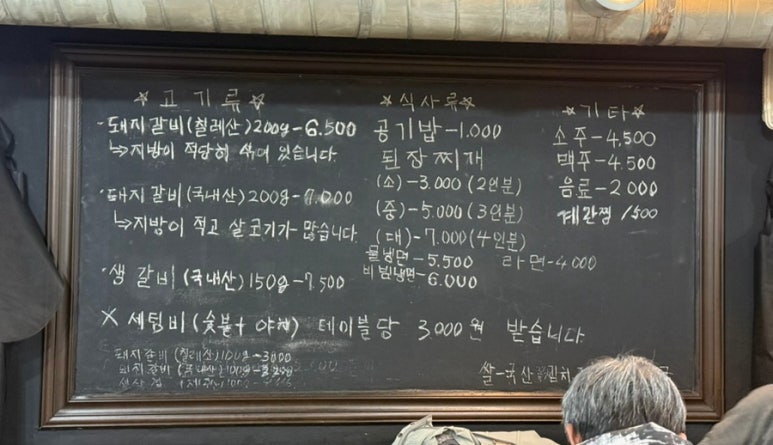 ☆고기류☆
· 돼지갈비(칠레산)200g-6.500
↳지방이 적당히 섞여 있습니다.
· 돼지갈비(국내산)200g-7.000
↳지방이 적고 살코기가 많습니다.
· 생갈비(국내산)150g-7.500
※ 세팅비(숯불+야채) 테이블당 3.000원 받습니다.
돼지갈비(칠레산)100g-3000
돼지갈비(국내산)100g
☆식사류☆
공기밥-1.000
된장찌개
(소)-3.000(2인분)
(중)-5.000(3인분)
(대)-7.000(4인분)
물냉면-5.500
비빔냉면-6.000
라면-4.000
☆기타☆
소주-4.500
맥주-4.500
음료-2.000
계란찜 1500
쌀-국산 김치